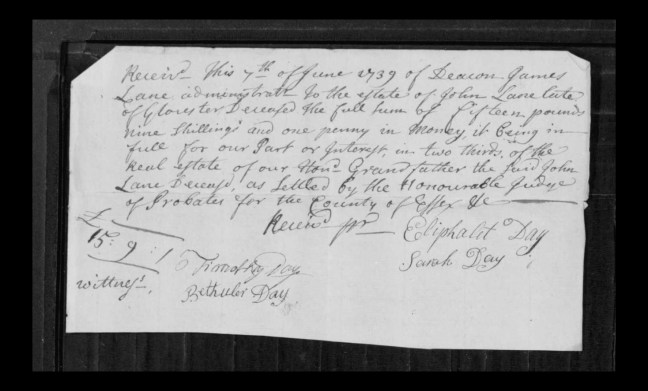 Receiv.d this 7th of June 1739 of Deacon James
Lane administratr to the estate of John Lane late
of Glocester Deceased the full sum of fifteen pounds
nine Shillings and one penny in Money, it being in
full for our Part or Interest, in two thirds, of the
Real estate of our Hond. Grandfather the said John
Lane Decensd, as Setled by the Honourable Judge
of Probates for the County of Essex &c
Receivd pr Eliphalet Day
Sarah Day
£
15: 9: 1
Wittness.
Timothy Day
Bethuler Day